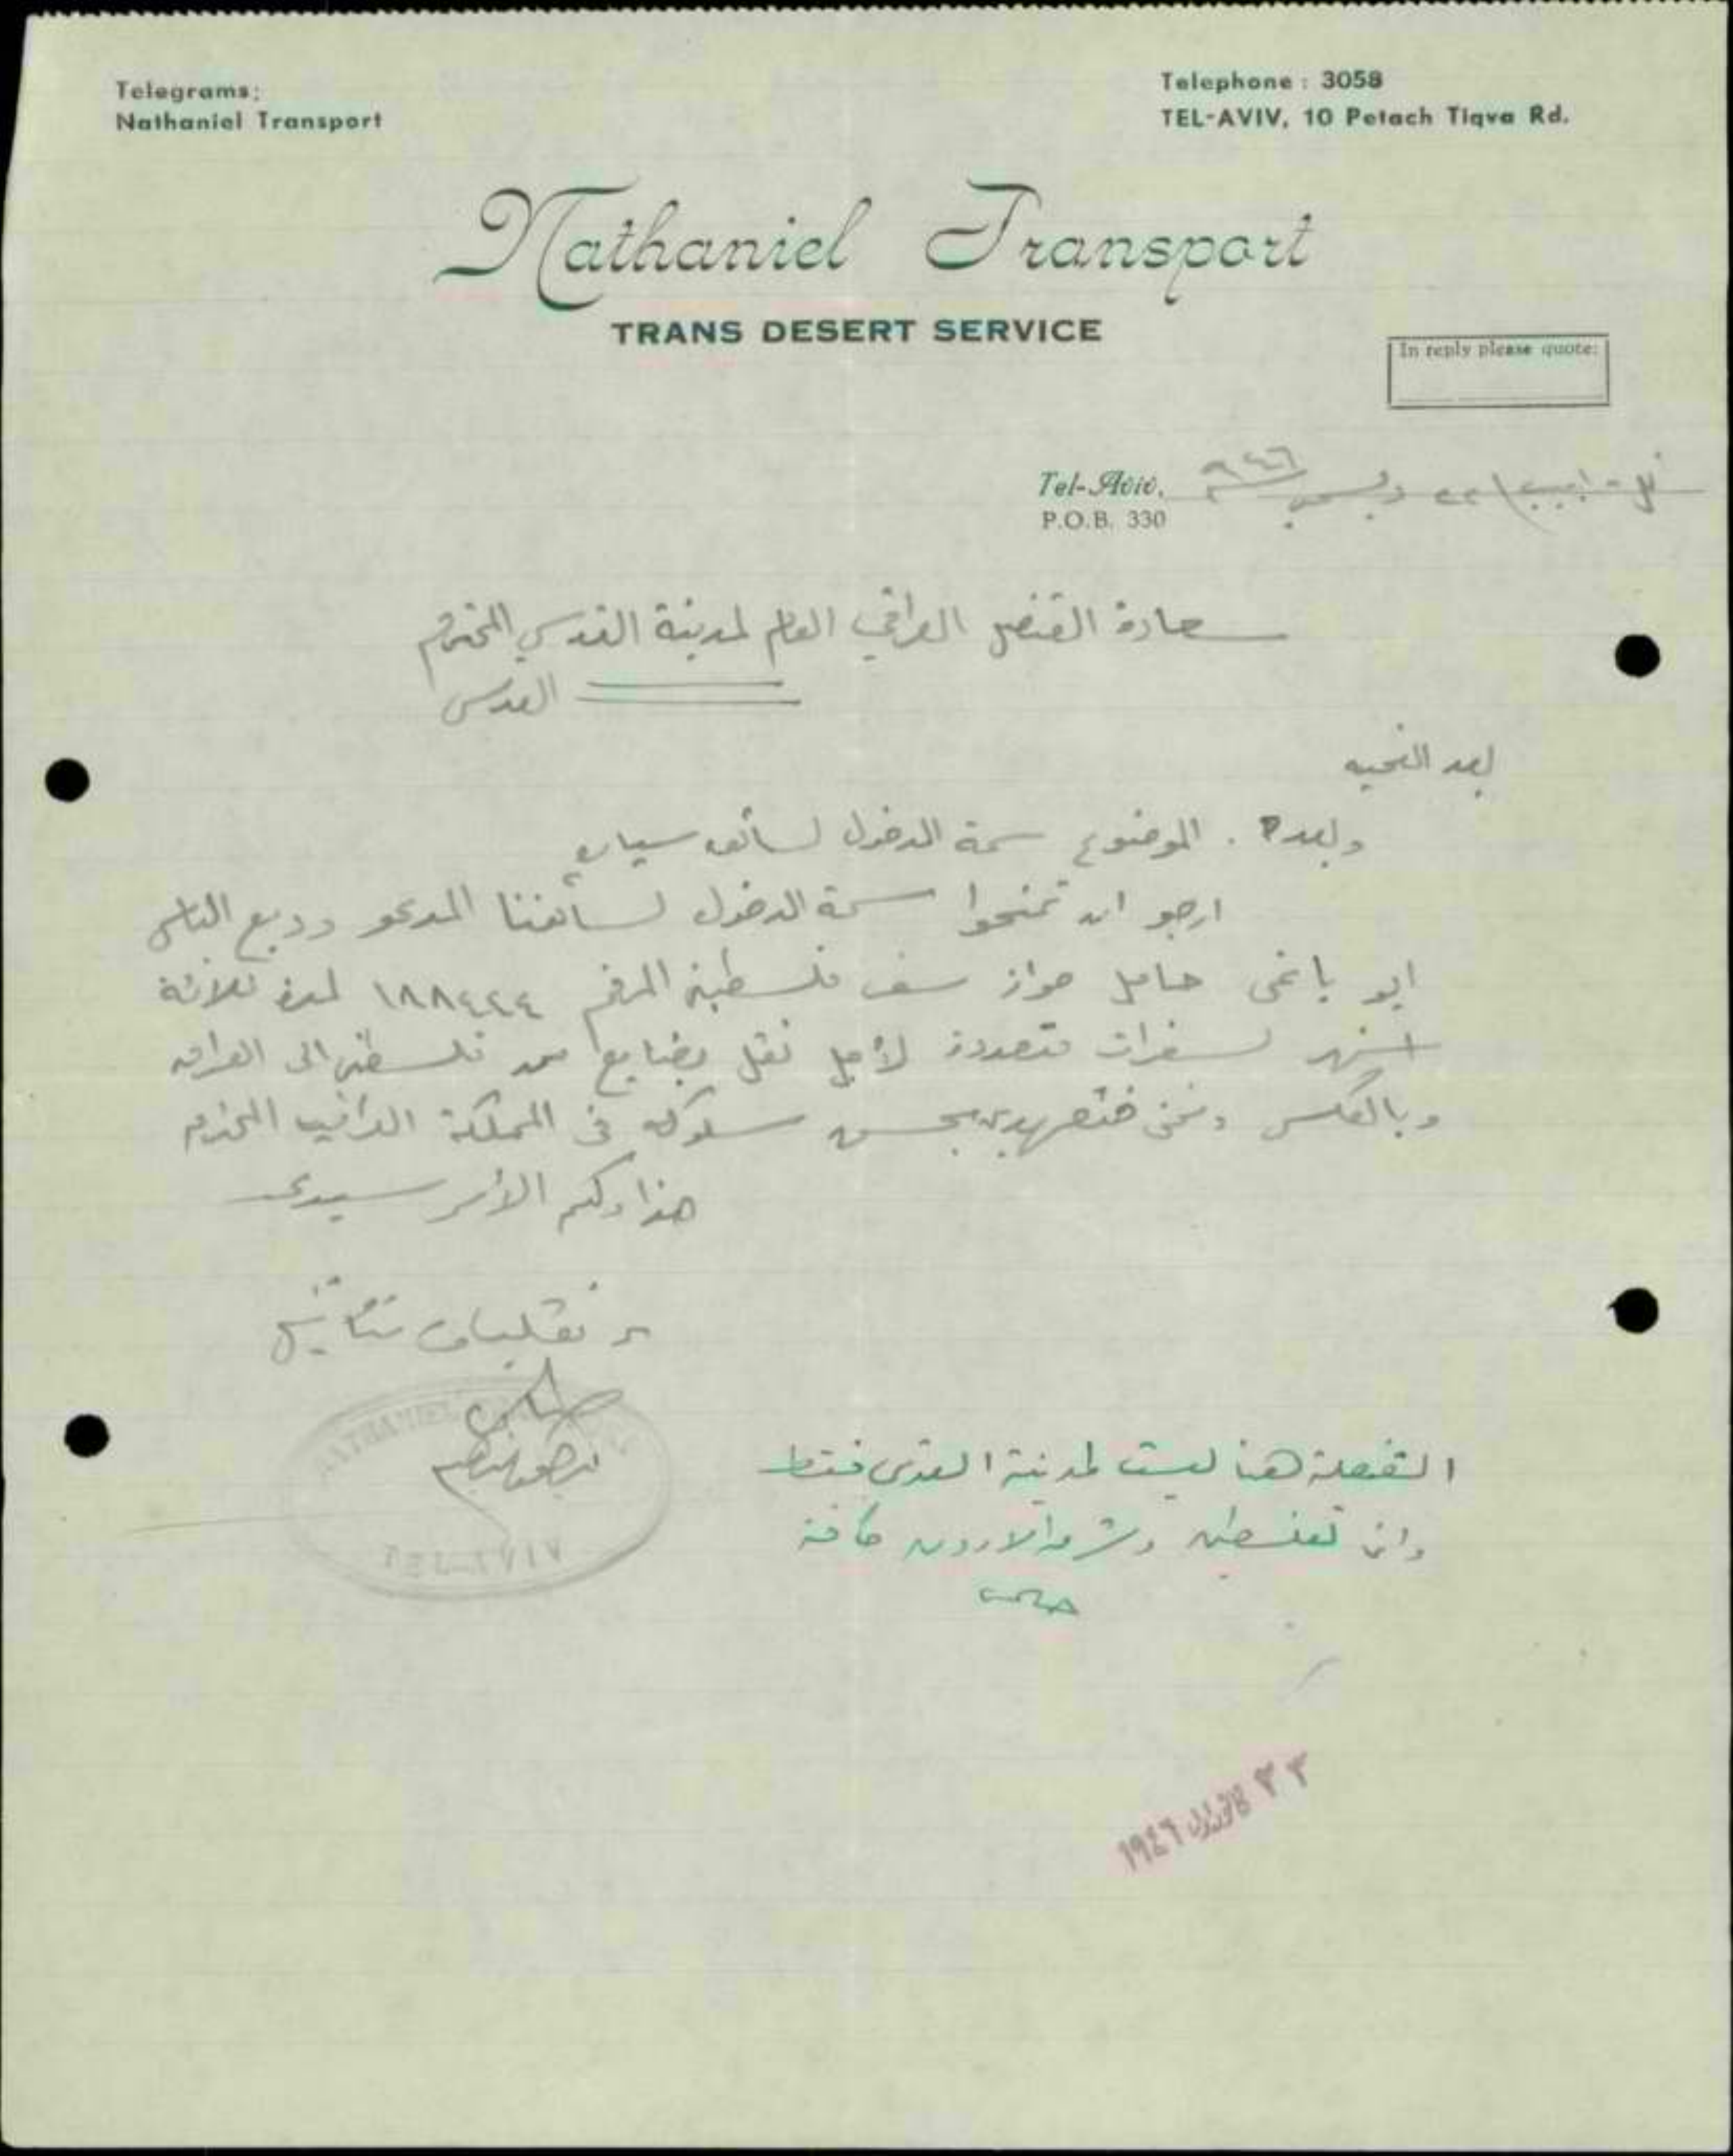 Telegrams:
Nathaniel Transport
Telephone : 3058
TEL-AVIV, 10 Petach Tiqva Rd.
Nathaniel Transport
TRANS DESERT SERVICE
In reply please quote:
Tel-Aviv, تل-ابيب ٢٢ ديسمبر ٩٤٦
P.O.B. 330
سعادة القنصل العراقي العام لمدينة القدس المحترم
القدس
بعد التحيه
وبعده . الموضوع سمة الدخول لسائق سياره
ارجو ان تمنحوا سمة الدخول لسائقنا المدعو وديع الياس
ابو حامل جواز سفر فلسطيني المرقم ١٨٨٤٢٤ لمدة ثلاثة
اشهر لسفرات متعددة لأجل نقل بضايع من فلسطين الى العراق
وبالعكس ونحن نتعهد بحسن سلوكه في المملكة العراقيه المحترم
هذا ولكم الأمر سيدي
نقليات نتانيل
NATHANIEL
TEL-AVIV
القنصلية هنا ليست لمدينة القدس فقط
وانما لفلسطين وشرق الاردن كافة
٢٣ ك الاول ١٩٤٦